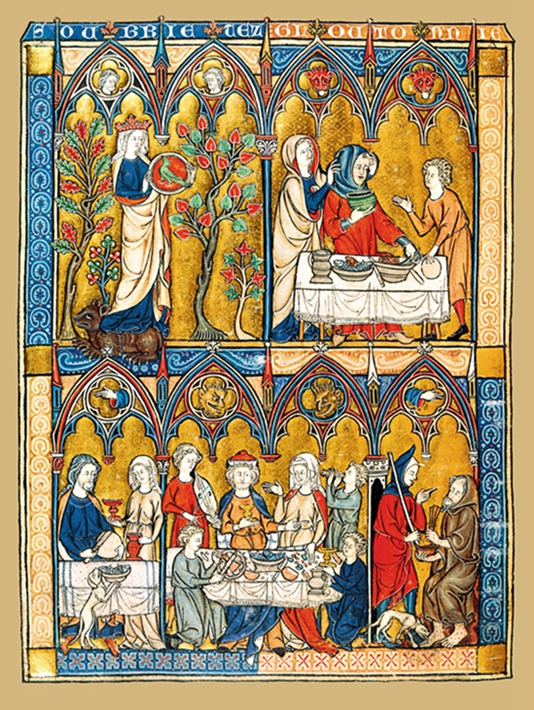 SOUBRIETEZ GLOUTONNIE